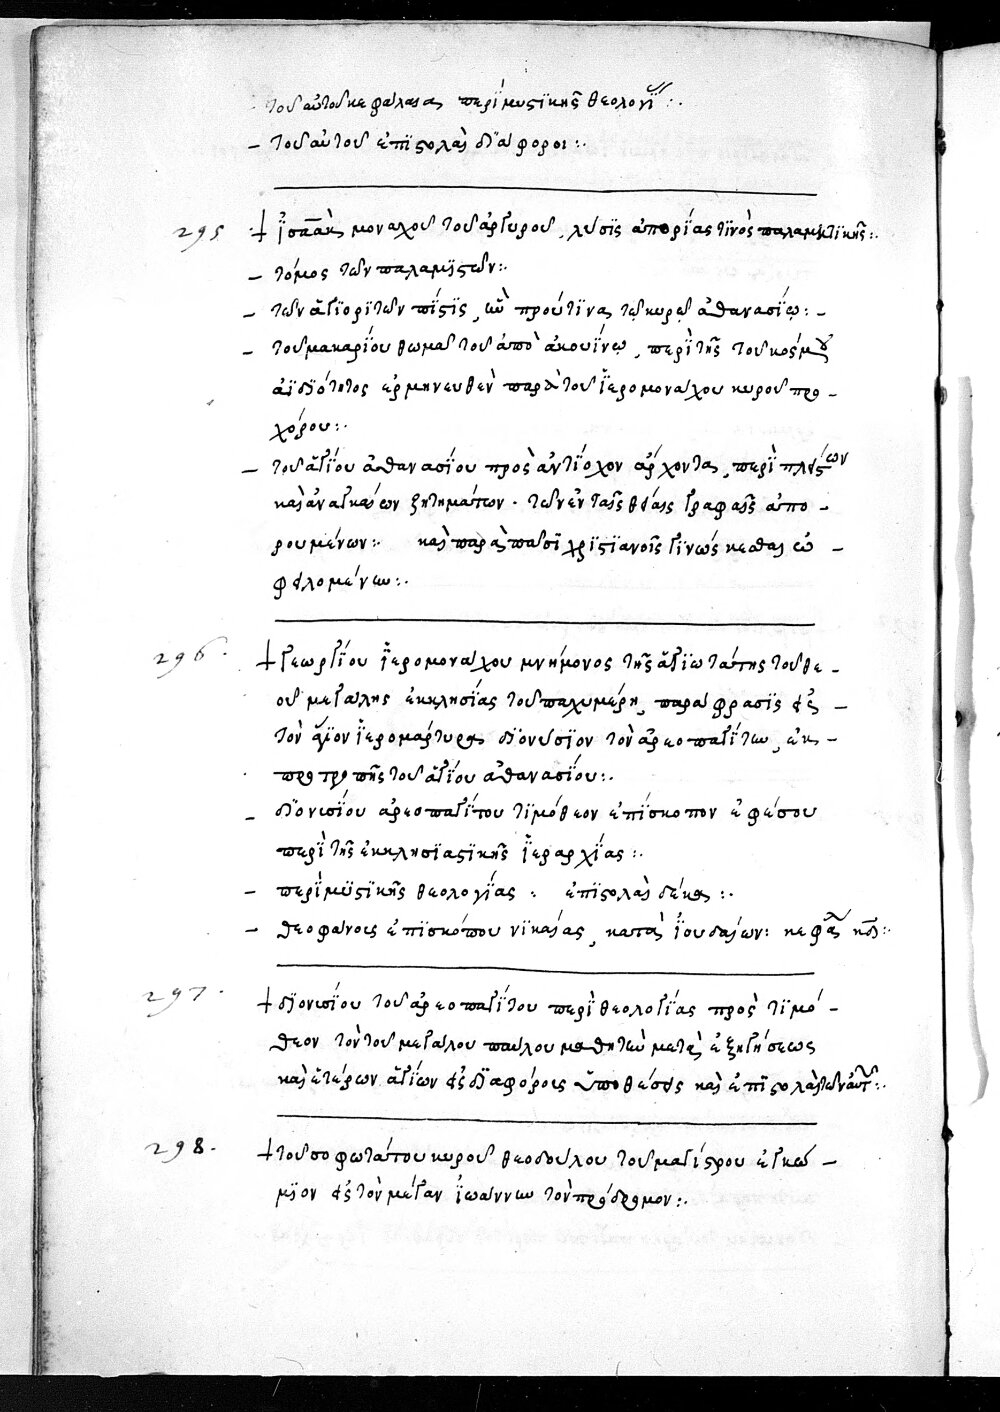 τοῦ αὐτοῦ κεφάλαια περὶ μυστικῆς θεολογί
– τοῦ αὐτοῦ ἐπιστολαὶ διάφοροι :.
295 + ἰσαὰκ μοναχοῦ τοῦ ἀργυροῦ, λύσις ἀπορίας τινὸς παλαμιτικῆς :.
– τόμος τῶν παλαμιστῶν :.
– τῶν ἁγιοριτῶν πίστις, ὧν προύτινας τῷ κυρῷ ἀθανασίῳ : –
– τοῦ μακαρίου θωμᾶ τοῦ ἀπὸ ἀκουίνῳ, περὶ τῆς τοῦ κόσμου
ἀϊδιότητος ἑρμηνευθὲν παρὰ τοῦ ἱερομονάχου κυροῦ προ –
χόρου :.
– τοῦ ἁγίου ἀθανασίου πρὸς ἀντίοχον ἄρχοντα, περὶ πλείστων
καὶ ἀναγκαίων ζητημάτων · τῶν ἐν ταῖς θείαις γραφαῖς ἀπο –
ρουμένων : καὶ παρὰ πᾶσι χριστιανοῖς γινώσκεσθαι ὠ –
φειλομένων :.
296 · + γεωργίου ἱερομονάχου μνήμονος τῆς ἁγιωτάτης τοῦ θε –
οῦ μεγάλης ἐκκλησίας τοῦ παχυμέρη, παράφρασις εἰς –
τὸν ἅγιον ἱερομάρτυρα διονύσιον τὸν ἀρεοπαγίτην, ἐκ –
προτροπῆς τοῦ ἁγίου ἀθανασίου :.
– διονισίου ἀρεοπαγίτου τιμόθεον ἐπίσκοπον ἐφέσου
περὶ τῆς ἐκκλησιαστικῆς ἱεραρχίας :.
– περὶ μυστικῆς θεολογίας : ἐπιστολαὶ δέκα :.
– θεοφάνους ἐπισκόπου νικαίας, κατὰ ἰουδαίων : κεφα κδ :.
297 · + διονισίου τοῦ ἀρεοπαγίτου περὶ θεολογίας πρὸς τιμό –
θεον τὸν τοῦ μεγάλου παύλου μαθητὴν μετὰ ἐξηγήσεως
καὶ ἑτέρων ἁγίων εἰς διαφόρους ὑποθέσεις καὶ ἐπιστολαὶ τῶν αὐτ :.
298 · + τοῦ σοφωτάτου κυροῦ θεοδούλου τοῦ μαγίστρου ἐγκώ –
μιον εἰς τὸν μέγαν ἰωάννην τὸν πρόδρομον :.